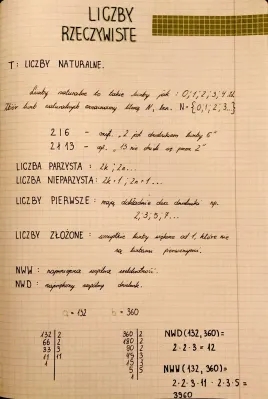 LICZBY
RZECZYWISTE
T: LICZBY NATURALNE.
Liczby naturalne to takie liczby jak: 0; 1; 2; 3; 4...
Zbiór liczb naturalnych oznaczamy literą N, tzn. N = {0; 1; 2; 3..}
2 | 6 - np. "2 jest dzielnikiem liczby 6"
2 ł 13 - np. "13 nie dzieli się przez 2"
LICZBA PARZYSTA: 2k; 2n...
LICZBA NIEPARZYSTA: 2k+1; 2n+1...
LICZBY PIERWSZE: mają dokładnie dwa dzielniki np.
2, 3, 5, 7...
LICZBY ZŁOŻONE: wszystkie liczby większe od 1, które nie
są liczbami pierwszymi.
NWW: najmniejsza wspólna wielokrotność.
NWD: największy wspólny dzielnik.
a = 132 b = 360
132 | 2 360 | 2 NWD(132, 360) =
66 | 2 180 | 2 2·2·3 = 12
33 | 3 90 | 2
11 | 11 45 | 3
1 15 | 3 NWW(132, 360) =
5 | 5 2·2·3·11·2·3·5 =
1 3960